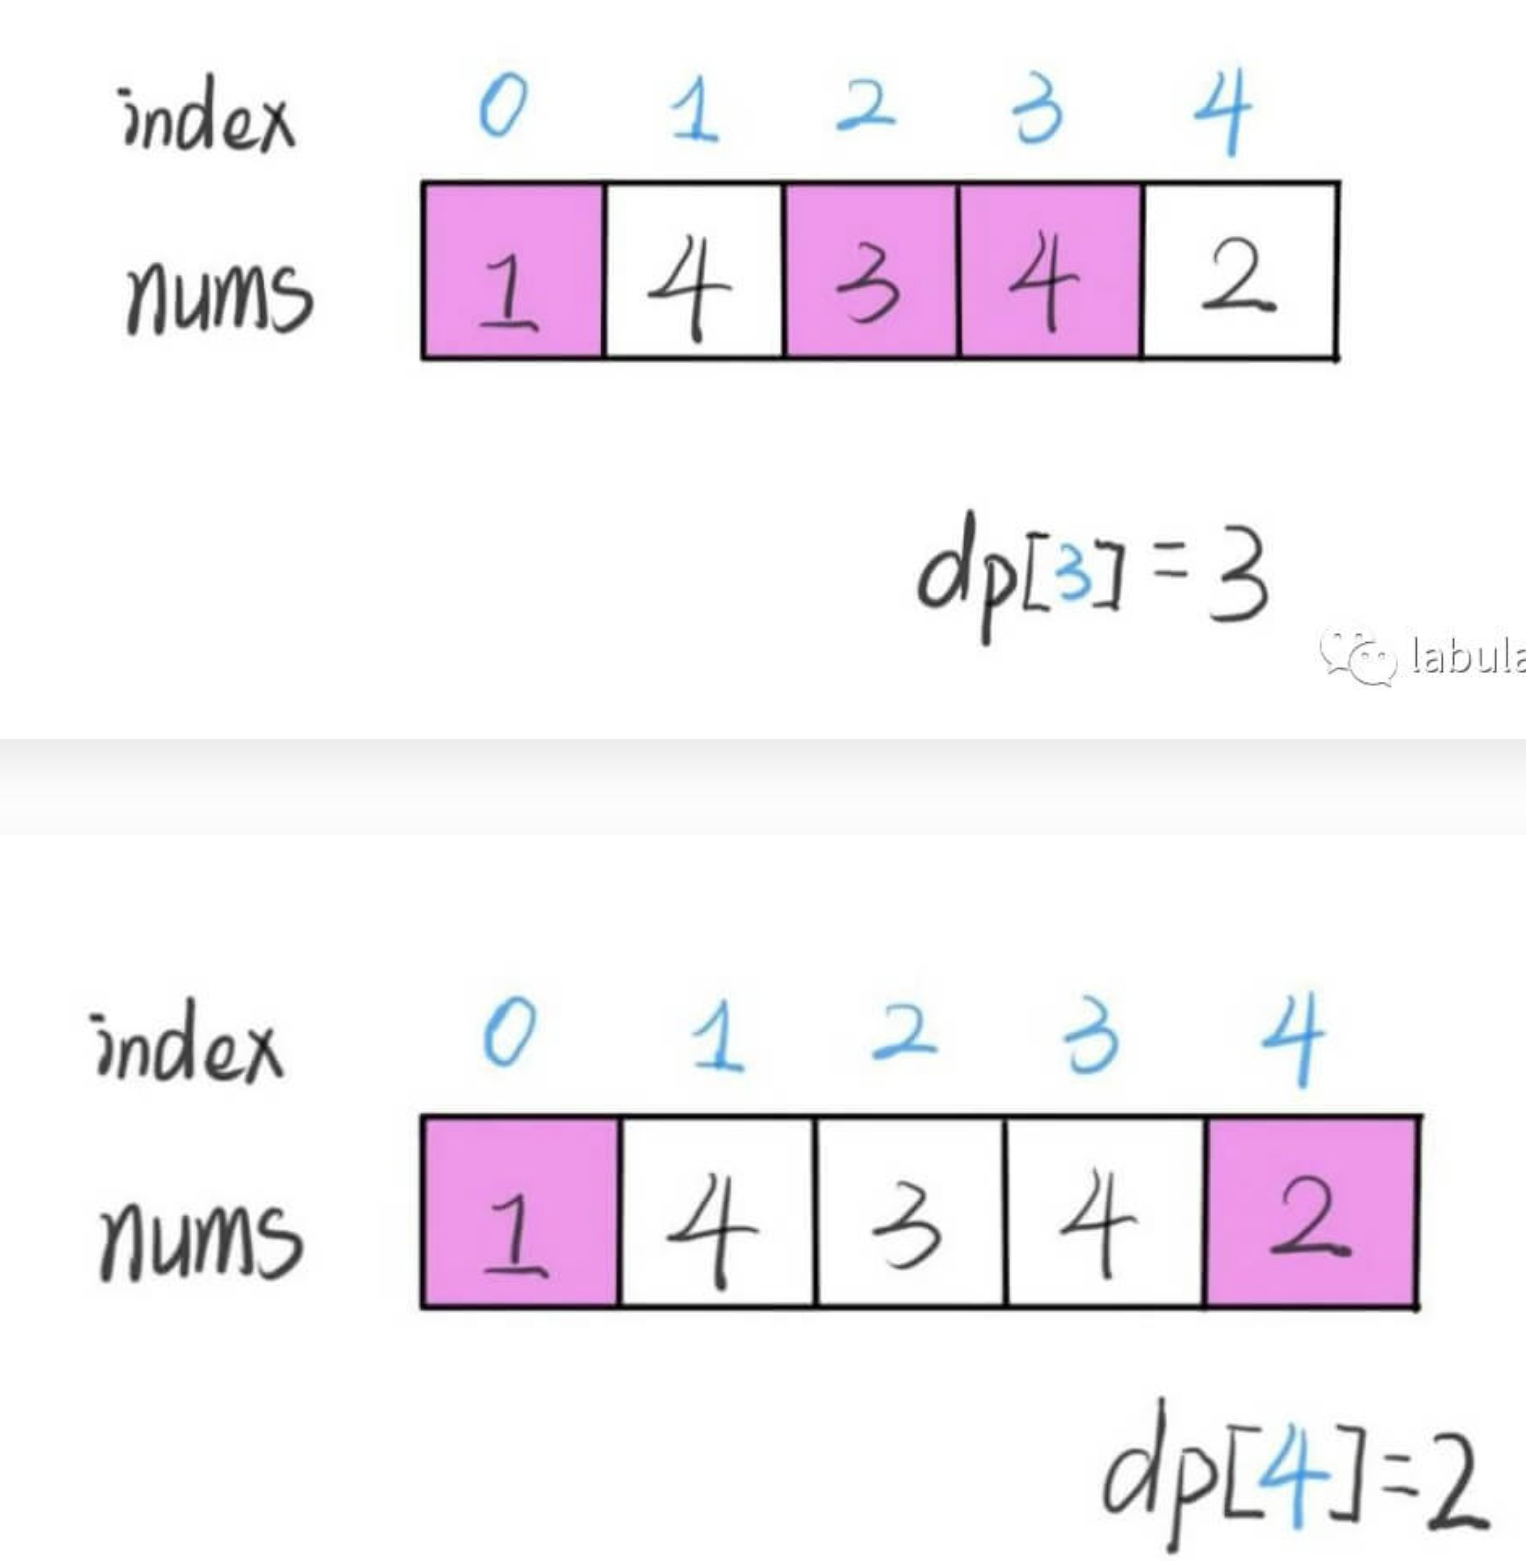 index 0 1 2 3 4
nums 1 4 3 4 2
dp[3]=3
labula
index 0 1 2 3 4
nums 1 4 3 4 2
dp[4]=2